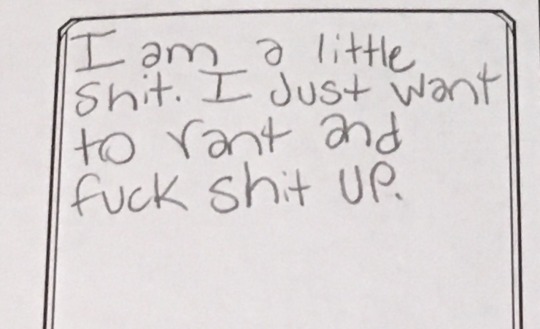 I am a little
shit. I Just want
to rant and
fuck shit up.